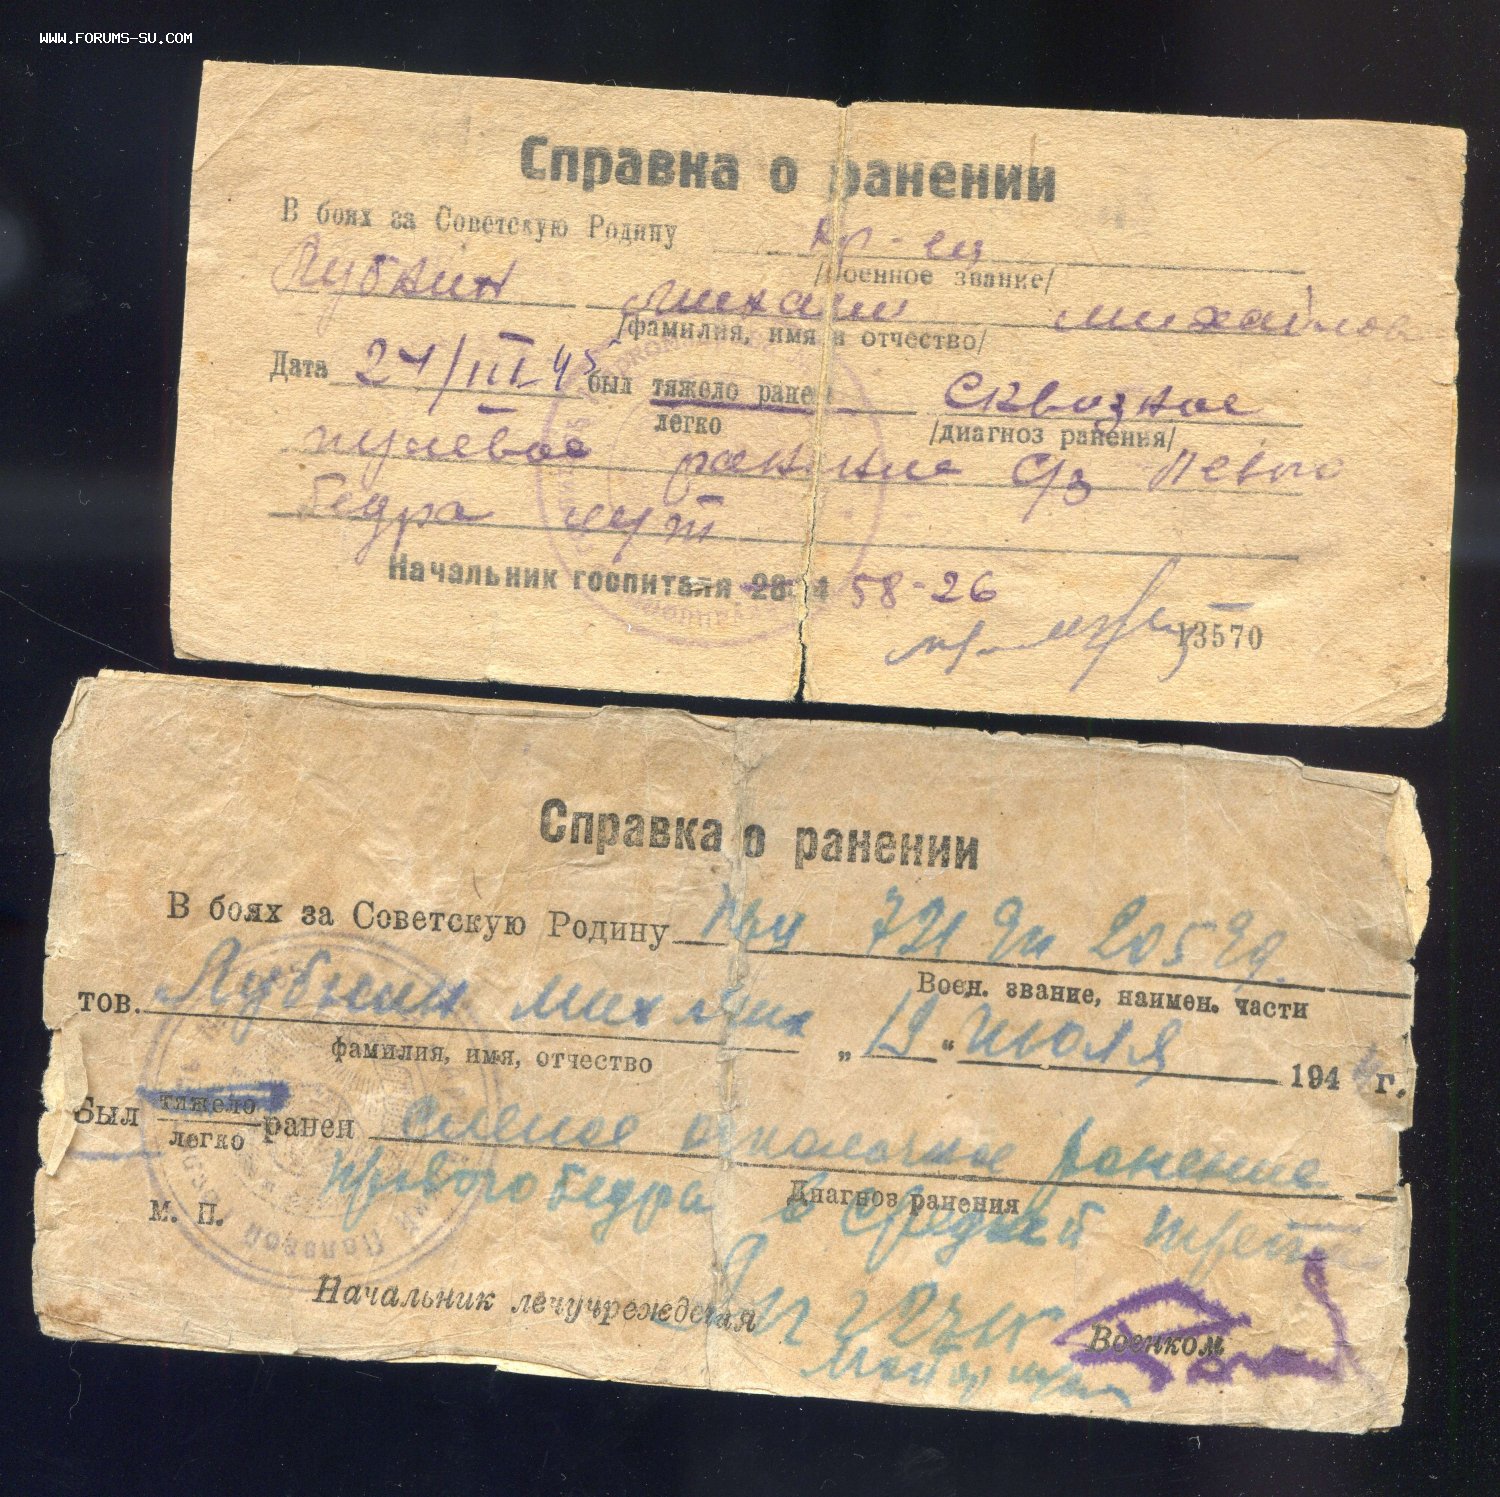 WWW.FORUMS-SU.COM
Справка о ранении
В боях за Советскую Родину кр-ец
/Военное звание/
Лубнин Михаил Михайлов
/фамилия, имя и отчество/
Дата 24/III 45 был тяжело ранен сквозное
легко /диагноз ранения/
пулевое ранение с/з левого
бедра
Начальник госпиталя 58-26
13570
Справка о ранении
В боях за Советскую Родину 721 205
Воен. звание, наимен. части
тов. Лубнин Михаил „19“ июля 194 г.
фамилия, имя, отчество
Был тяжело ранен слепое осколочное ранение
легко
Диагноз ранения
правого бедра в средней трети
М. П.
Начальник лечучреждения Военком
Майор